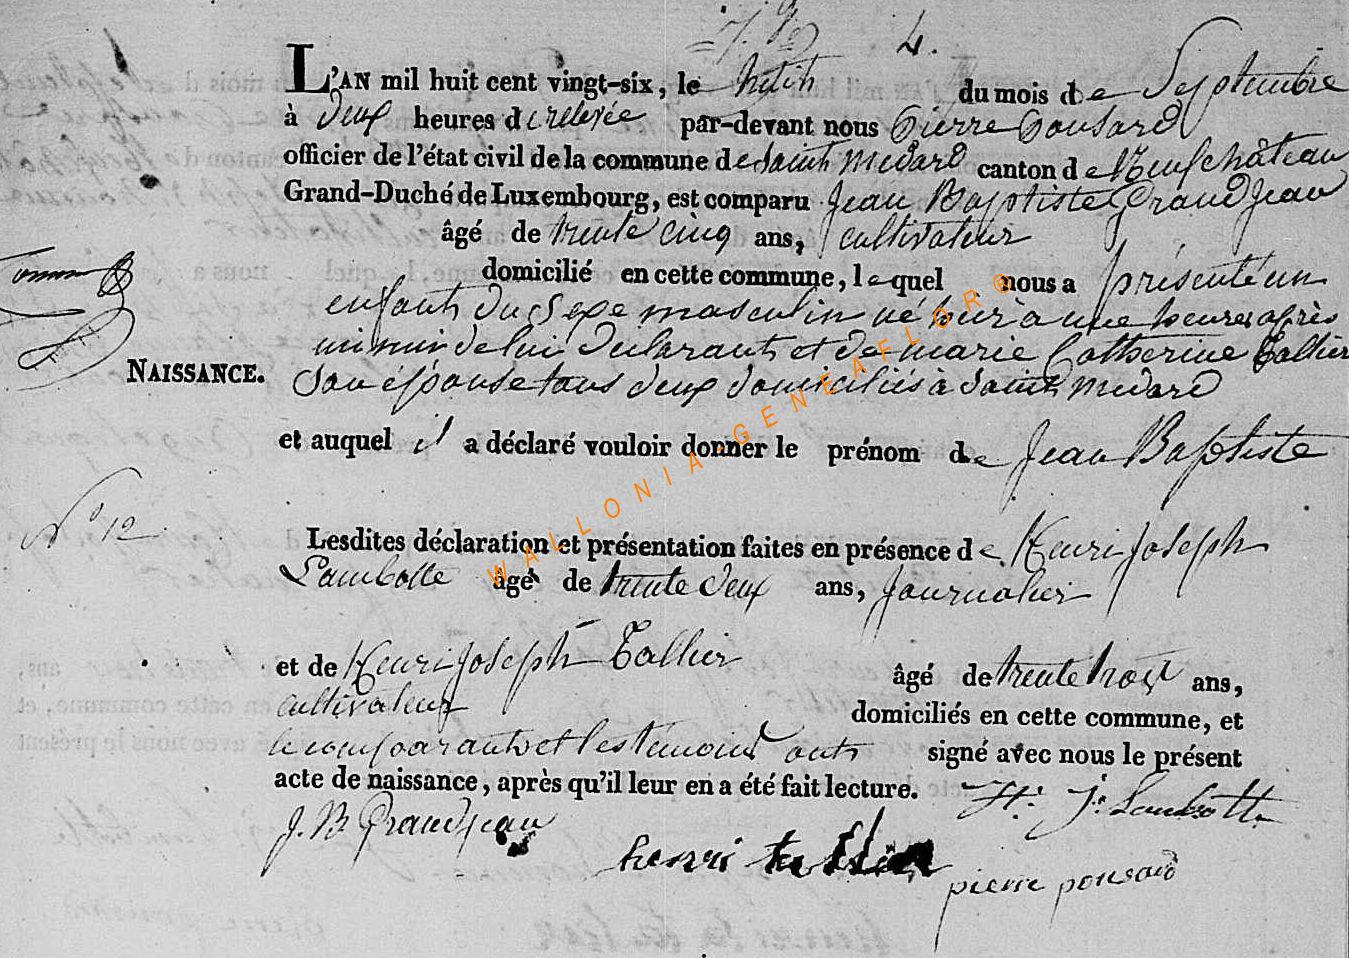 4.
L'AN mil huit cent vingt-six, le huit du mois de Septembre
à deux heures de relevée par-devant nous Pierre Ponsard
officier de l'état civil de la commune de Saint Medard canton de Neufchâteau
Grand-Duché de Luxembourg, est comparu Jean Baptiste Grandjean
âgé de trente cinq ans, cultivateur
domicilié en cette commune, lequel nous a présenté un
enfant du Sexe masculin né hier à une heures après
minuit de lui declarant et de marie Catherine Tallier
Son épouse tous deux domiciliés à Saint Medard
NAISSANCE.
et auquel il a déclaré vouloir donner le prénom de Jean Baptiste
N° 12
Lesdites déclaration et présentation faites en présence de Henri Joseph
Lambotte âgé de trente deux ans, Journalier
et de Henri Joseph Tallier âgé de trente trois ans,
cultivateur
domiciliés en cette commune, et
le comparant et les temoins ont signé avec nous le présent
acte de naissance, après qu'il leur en a été fait lecture.
H. J. Lambotte
J. B. Grandjean
henri
pierre ponsard
WALLONIA-GENEAFLOR©